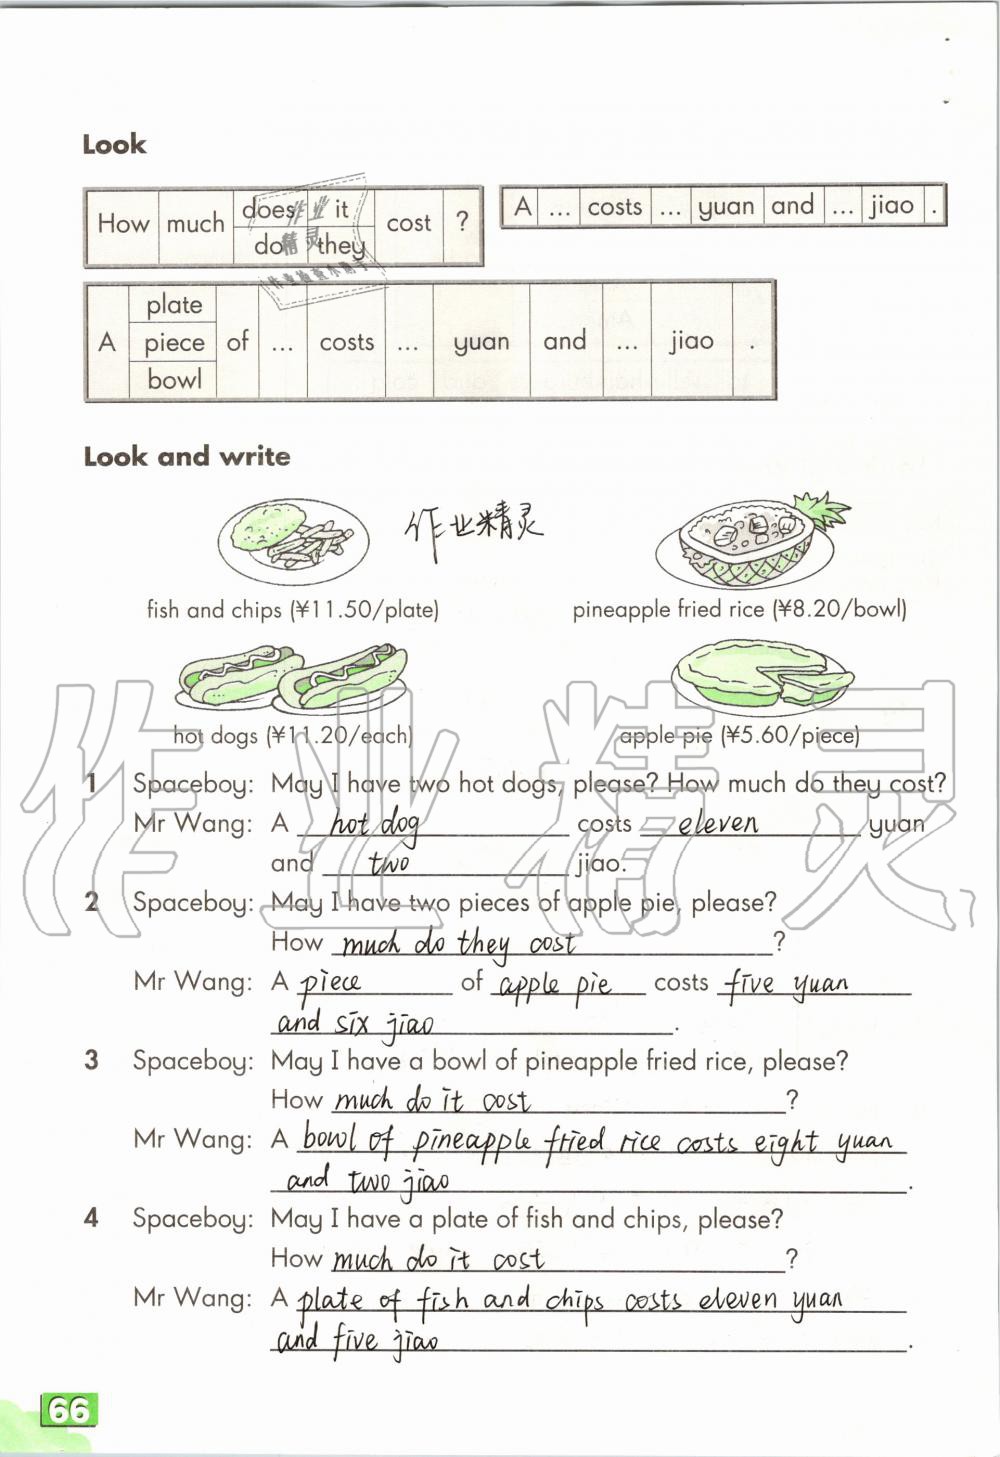 Look
How much does it cost ?
do they
A ... costs ... yuan and ... jiao .
plate
A piece of ... costs ... yuan and ... jiao .
bowl
Look and write
作业精灵
fish and chips (¥11.50/plate) pineapple fried rice (¥8.20/bowl)
hot dogs (¥11.20/each) apple pie (¥5.60/piece)
作业精灵
1 Spaceboy: May I have two hot dogs, please? How much do they cost?
Mr Wang: A hot dog costs eleven yuan
and two jiao.
2 Spaceboy: May I have two pieces of apple pie, please?
How much do they cost ?
Mr Wang: A piece of apple pie costs five yuan
and six jiao .
3 Spaceboy: May I have a bowl of pineapple fried rice, please?
How much do it cost ?
Mr Wang: A bowl of pineapple fried rice costs eight yuan
and two jiao .
4 Spaceboy: May I have a plate of fish and chips, please?
How much do it cost ?
Mr Wang: A plate of fish and chips costs eleven yuan
and five jiao .
66